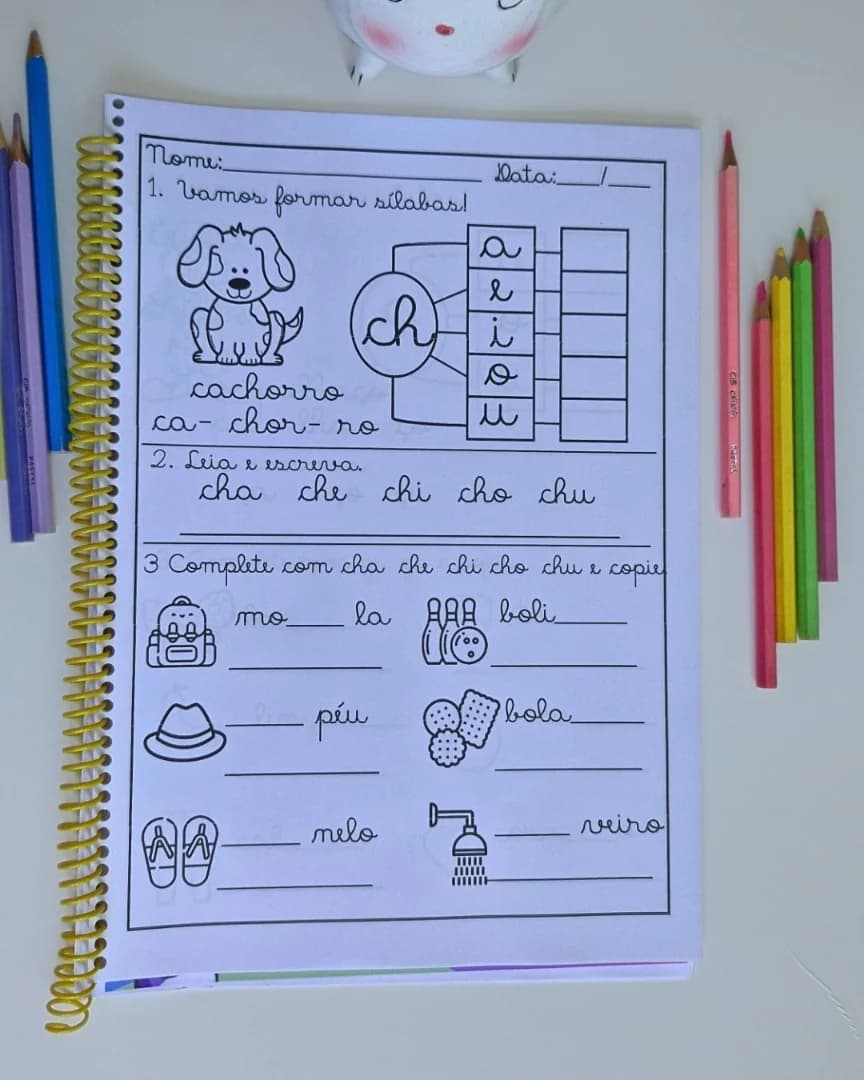 Nome:____________________ Data:___/___
1. Vamos formar sílabas!
a
e
ch
i
o
u
cachorro
ca- chor- ro
2. Leia e escreva.
cha che chi cho chu
3 Complete com cha che chi cho chu e copie
mo_____ la
boli______
______ péu
bola______
______ nelo
______ veiro